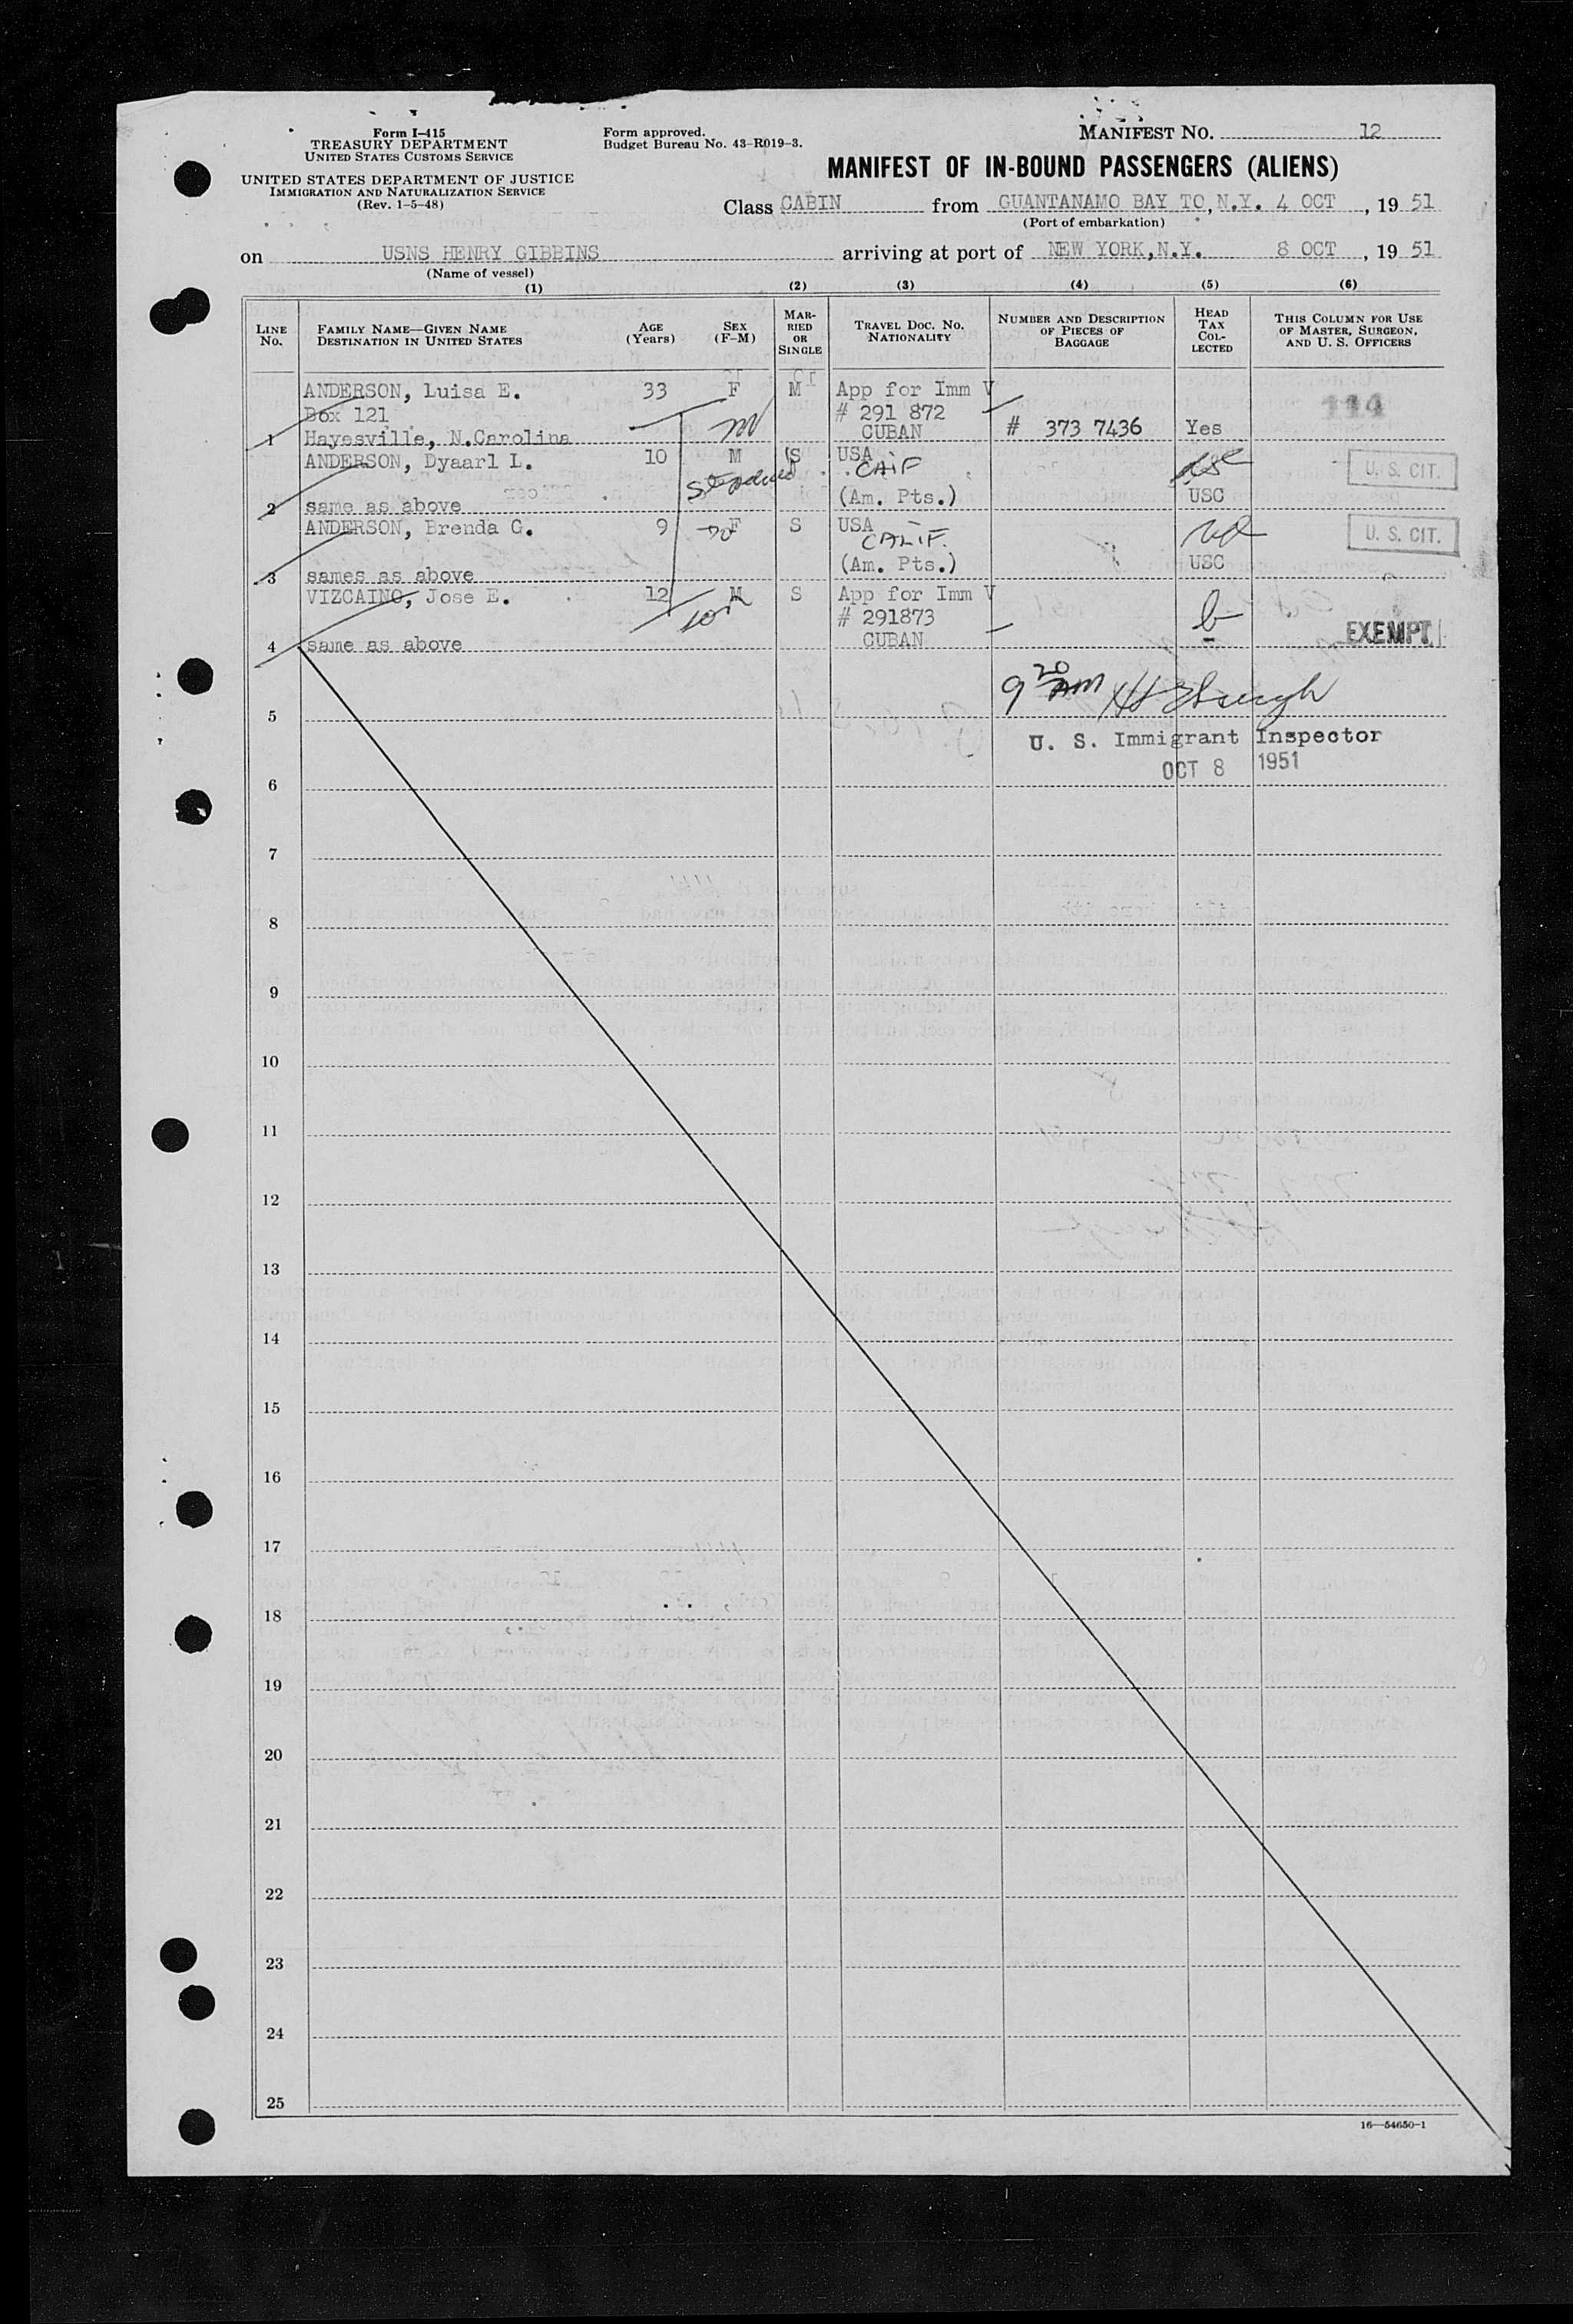 Form I-415
TREASURY DEPARTMENT
UNITED STATES CUSTOMS SERVICE
UNITED STATES DEPARTMENT OF JUSTICE
IMMIGRATION AND NATURALIZATION SERVICE
(Rev. 1-5-48)
Form approved.
Budget Bureau No. 43-R019-3.
MANIFEST NO. 12
MANIFEST OF IN-BOUND PASSENGERS (ALIENS)
Class CABIN from GUANTANAMO BAY TO, N.Y. 4 OCT, 19 51
(Port of embarkation)
on USNS HENRY GIBBINS arriving at port of NEW YORK, N.Y. 8 OCT, 19 51
(Name of vessel)
(1) (2) (3) (4) (5) (6)
LINE No.
FAMILY NAME—GIVEN NAME
DESTINATION IN UNITED STATES
AGE (Years)
SEX (F-M)
MARRIED OR SINGLE
TRAVEL DOC. NO. NATIONALITY
NUMBER AND DESCRIPTION OF PIECES OF BAGGAGE
HEAD TAX COLLECTED
THIS COLUMN FOR USE OF MASTER, SURGEON, AND U. S. OFFICERS
ANDERSON, Luisa E. 33 F M App for Imm V
Box 121 # 291 872 114
1 Hayesville, N.Carolina CUBAN # 373 7436 Yes
ANDERSON, Dyaarl L. 10 M S USA U. S. CIT.
CAIF
2 same as above (Am. Pts.) USC
ANDERSON, Brenda G. 9 F S USA U. S. CIT.
CALIF.
3 sames as above (Am. Pts.) USC
VIZCAINO, Jose E. 12 M S App for Imm V
son # 291873
4 same as above CUBAN EXEMPT
9 20 AM
5
U. S. Immigrant Inspector
OCT 8 1951
6
7
8
9
10
11
12
13
14
15
16
17
18
19
20
21
22
23
24
25
16—54650-1